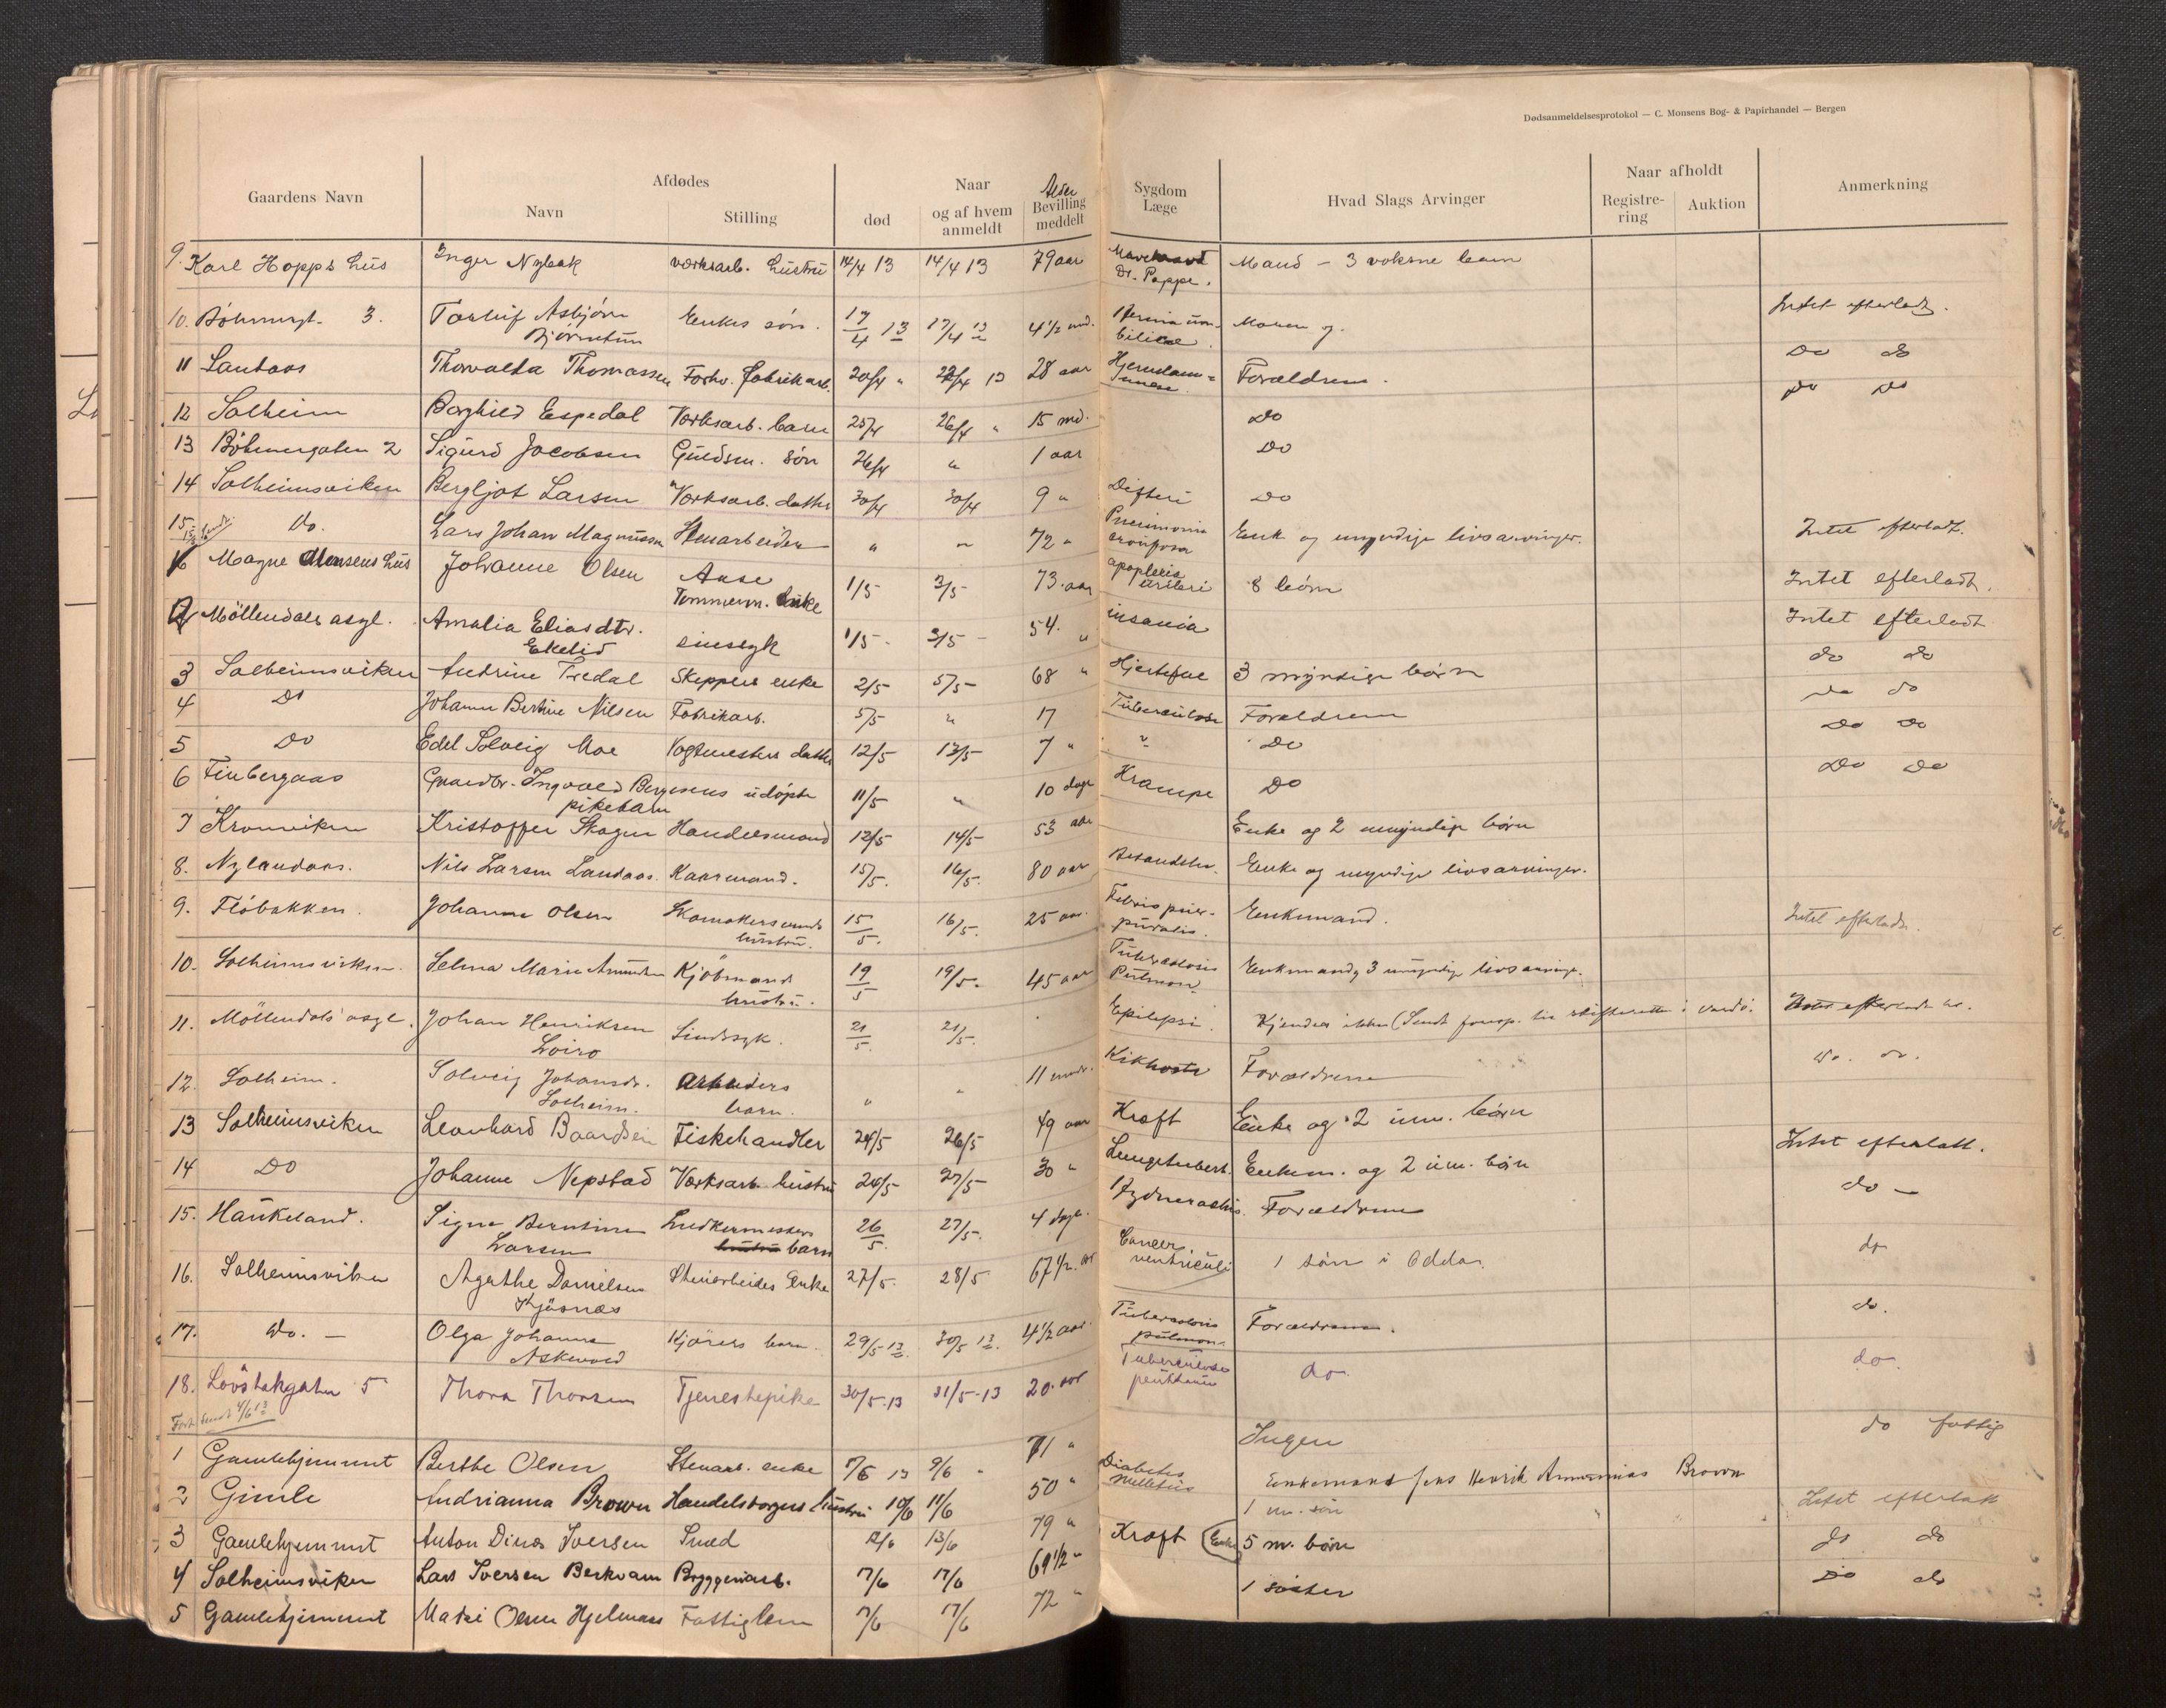 Dødsanmeldelsesprotokol — C. Monsens Bog- & Papirhandel — Bergen
Gaardens Navn Afdødes Naar Alder Sygdom Hvad Slags Arvinger Naar afholdt Anmerkning
Navn Stilling død og af hvem anmeldt Bevilling meddelt Læge Registre-ring Auktion
9. Karl Hopps hus Inger Nybak værksarb. hustru 14/4 13 14/4 13 79 aar Dr. Poppe. Mand — 3 voksne barn
10. 3. Torleif Asbjørn Enkes søn. 17/4 13 17/4 13 4 1/2 md. Hernia um- Intet efterladt.
Bjørnetun bilical.
11 Landaas Thorvalda Thomassen Forhv. fabrikarb. 20/4 " 22/4 13 28 aar Forældrene. Do do
12 Solheim Borghild Espedal Værksarb. barn 25/4 26/4 " 15 md. Do Do Do
13 Böhmergaten 2 Sigurd Jacobsen Guldsm. søn 26/4 " 1 aar Do
14 Solheimsviken Bergljot Larsen Værksarb. datter 30/4 30/4 9 " Difteri Do
15 Do. Lars Johan Magnussen Stenarbeider " " 72 " Pneumonia crouposa Enke og umyndige livsarvinger. Intet efterladt.
Magne Monsens hus Johanne Olsen Tømmerm. enke 1/5 3/5 73 aar apoplexia 8 børn Intet efterladt.
Möllendals asyl. Amalia Eliasdtr. sinssyk 1/5 - 3/5 - 54. " insania Intet efterladt
Ekelid
3 Solheimsviken Andrine Tredal Skippers enke 2/5 5/5 - 68 " Hjertefeil 3 myndige børn do do
4 Do Johanne Bertine Nilsen Fabrikarb. 5/5 " 17 Tuberculose Forældrene do do
5 Do Edel Solveig Moe Vogtmesters datter 12/5 13/5 7 " " Do Do Do
6 Finbergaas Ingvald Bergesens udøpte 11/5 " 10 dage Krampe Do Do Do
pikebarn
7 Kronviken Kristoffer Skogen Handelsmand 12/5 14/5 53 aar Enke og 2 umyndige børn
8. Nylandaas. Nils Larsen Landaas. Kaarmand. 15/5. 16/5. 80 aar Enke og myndige livsarvinger.
9. Fløbakken. Johanna Olsen Skomakersvends hustru. 15/5. 16/5. 25 aar. Febris puer-puralis. Enkemand. Intet efterladt.
10. Solheimsviken. Selma Marie Amundsen Kjöbmands hustru. 19/5 19/5. 45 aar Tuberculosis Pulmon. Enkemand og 3 umyndige livsarvinger.
11. Möllendals asyl. Johan Henriksen Sindssyk. 21/5. 21/5. Epilepsi. Kjendes ikke (Sendt foresp. til skifteretten i Vardö. Intet efterladt
Loiro
12. Solheim. Solveig Johansdr. Arbeiders barn. " " 11 mndr. Kikhoste Forældrene do. do.
Solheim.
13 Solheimsviken Leonhard Baardsen Fiskehandler 24/5 26/5 49 aar Kræft Enke og 2 um. børn
14 Do Johanne Nepstad Værksarb. hustru 24/5 27/5 30 " Lungetuberk. Enkem. og 2 um. børn Intet efterlatt.
15. Haukeland. Signe Berntine Snedkermesters hustru barn 26/5. 27/5. 4 dage. Forældrene do —
Larsen
16. Solheimsviken Agathe Danielsen Stenarbeides Enke 27/5. 28/5 67 1/2. aar Cancer ventriculi 1 søn i Odda. do
Kjösnæs
17. Do. — Olga Johanna Kjörers barn. 29/5 13. 30/5 13. 4 1/2 aar. Tuberculosis pulmon. Forældrene. do.
Askevold
18. Lövstakgaten 5 Thora Thorsen Tjenestepike 30/5.13 31/5-13 20. aar Tuberculose do. do.
sendt 4/6 13
1 Gamlehjemmet Berthe Olsen Stenarb. enke 7/6 13 9/6 " 71 " Ingen do fattig
2 Gimle Andrianna Brown Handelsborgers hustru 10/6 11/6 50 " Diabetes mellitus Enkemand Jens Henrik Brown
1 um. søn
3 Gamlehjemmet Anton Dines Iversen Smed 12/6 13/6 79 " Intet efterlatt
4 Solheimsviken Lars Iversen Berkvam Bryggeriarb. 17/6 17/6 69 1/2 " Kræft Enke 5 m. børn do do
5 Gamlehjemmet Marie Olsen Hjelmaas Fattiglem 17/6 17/6 72 " 1 søster Do do